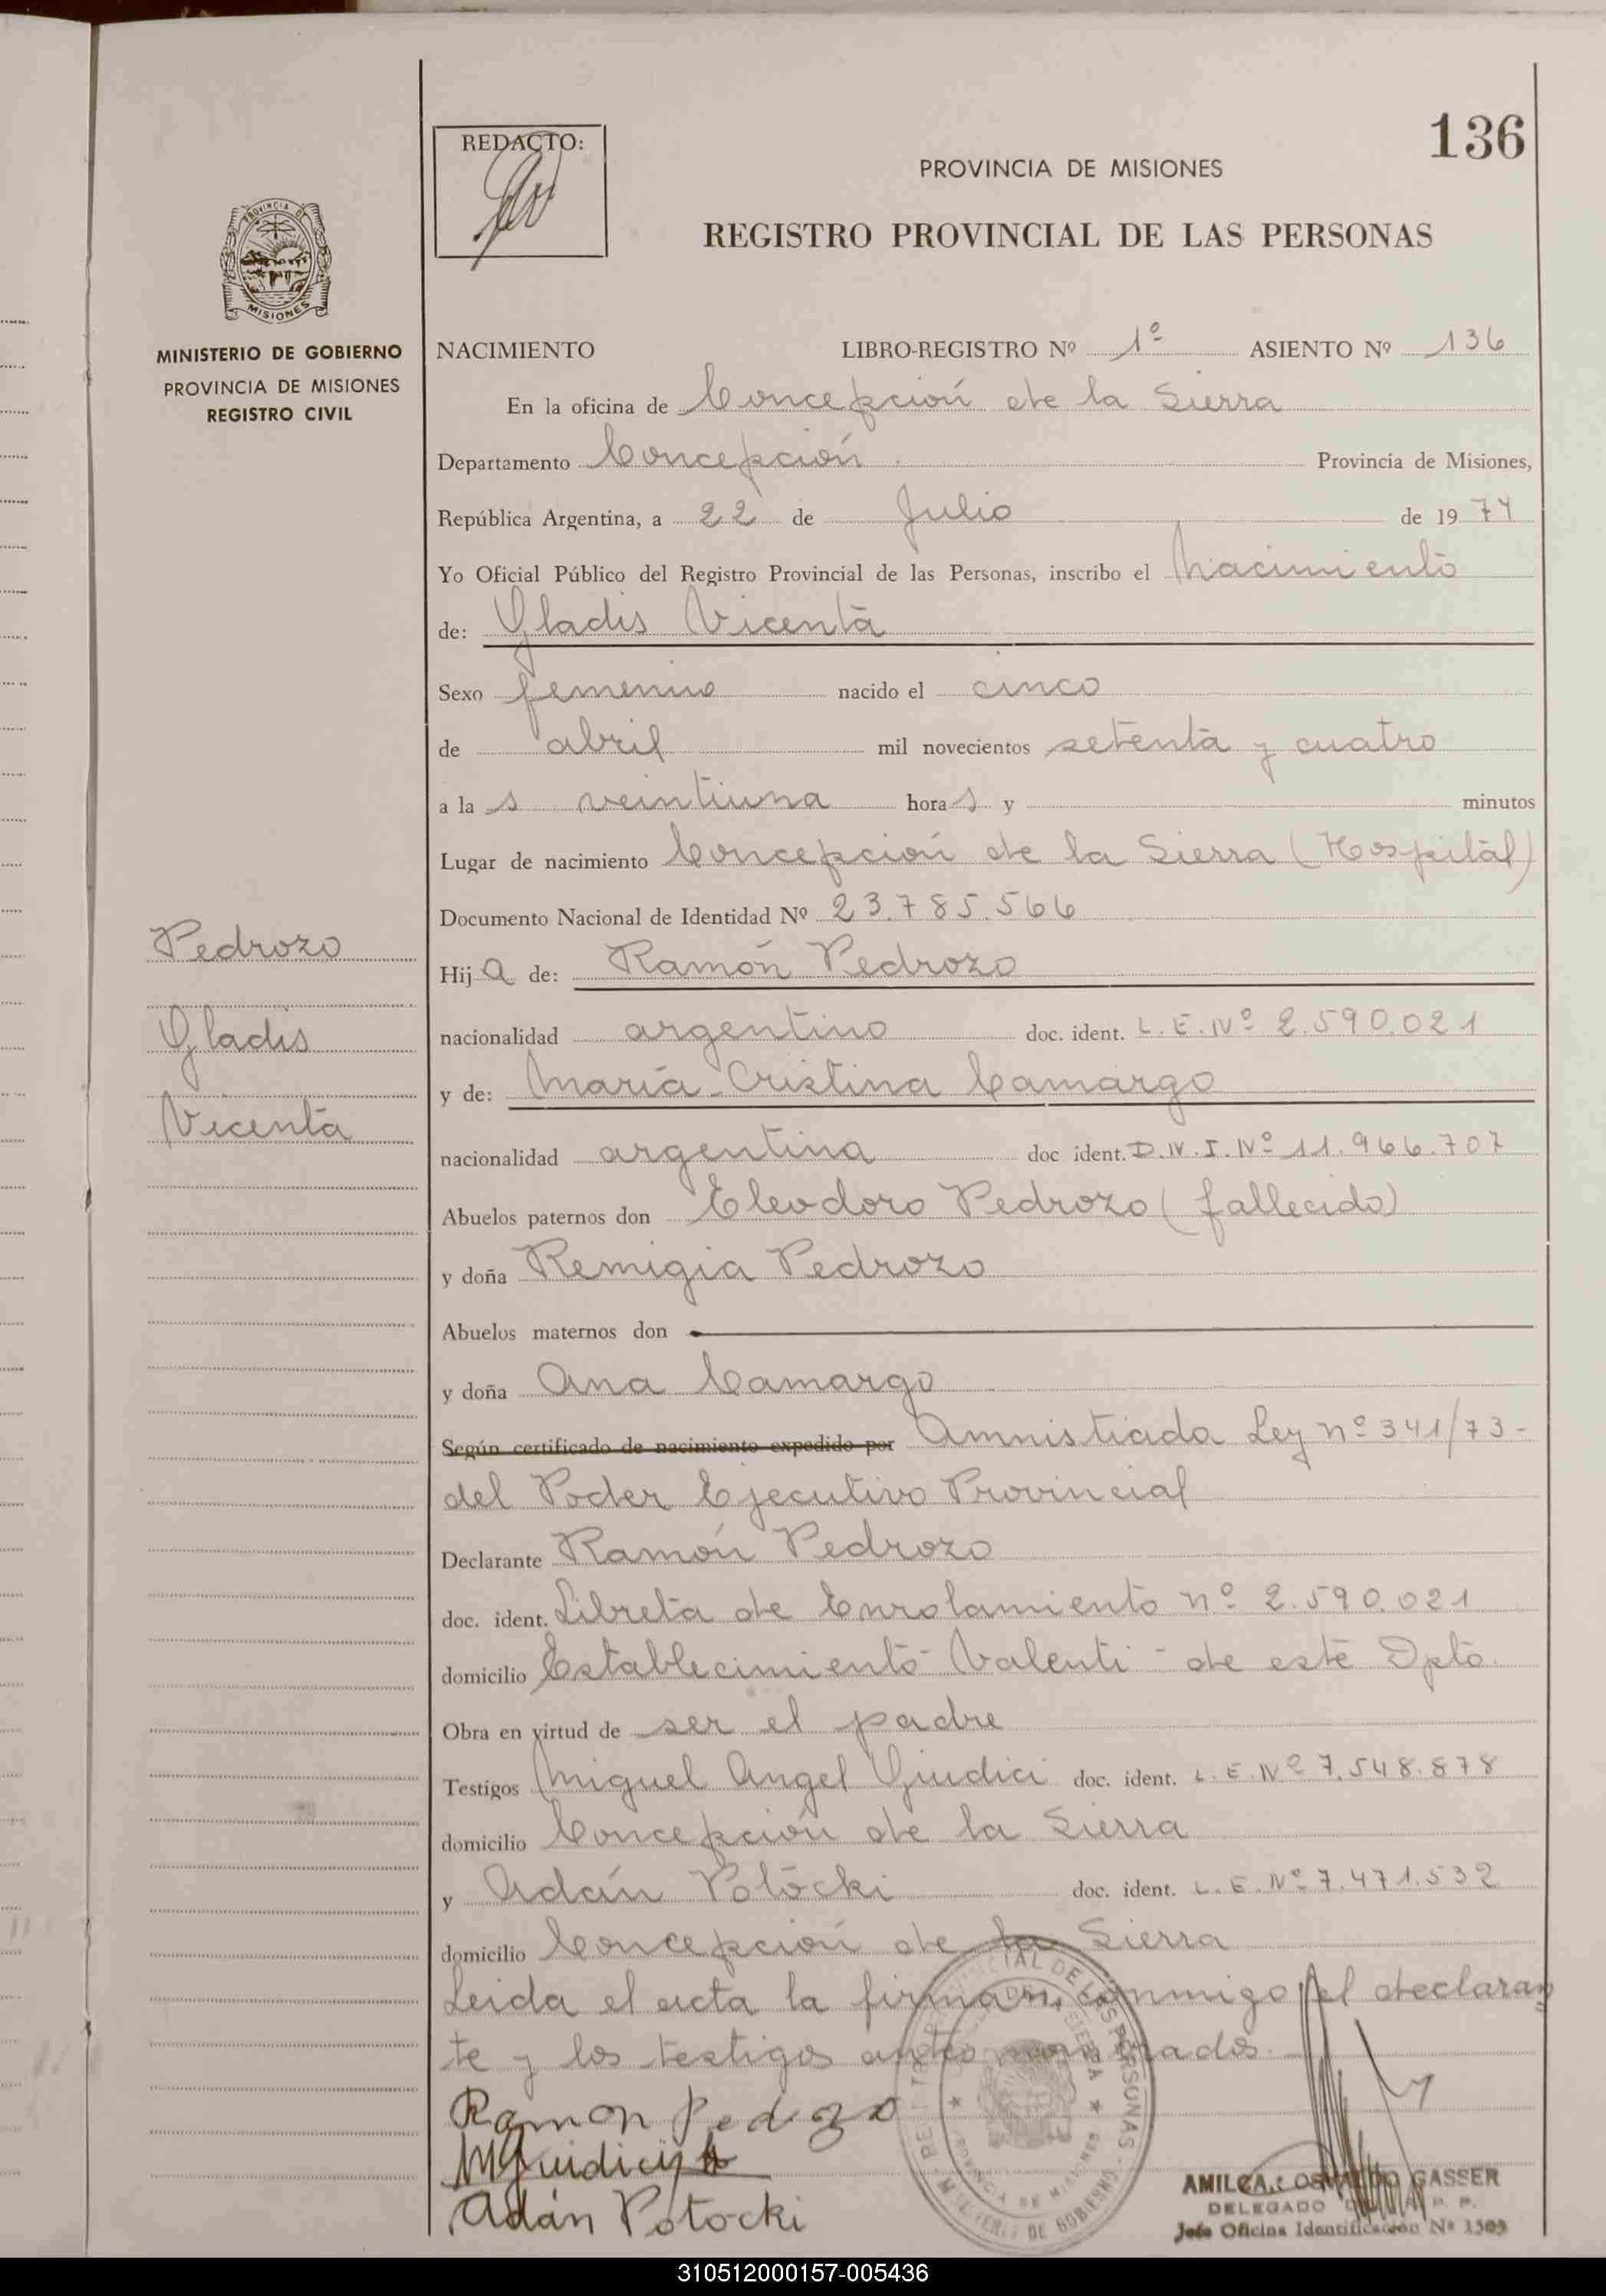 136
REDACTO:
PROVINCIA DE MISIONES
REGISTRO PROVINCIAL DE LAS PERSONAS
PROVINCIA DE
MISIONES
MINISTERIO DE GOBIERNO
PROVINCIA DE MISIONES
REGISTRO CIVIL
NACIMIENTO LIBRO-REGISTRO Nº 1º ASIENTO Nº 136
En la oficina de Concepción de la Sierra
Departamento Concepción Provincia de Misiones,
República Argentina, a 22 de Julio de 1974
Yo Oficial Público del Registro Provincial de las Personas, inscribo el Nacimiento
de: Gladis Vicenta
Sexo femenino nacido el cinco
de abril mil novecientos setenta y cuatro
a la s veintiuna hora s y minutos
Lugar de nacimiento Concepción de la Sierra (Hospital)
Documento Nacional de Identidad Nº 23.785.566
Pedrozo
Gladis
Vicenta
Hij a de: Ramón Pedrozo
nacionalidad argentino doc. ident. L.E.Nº 2.590.021
y de: María Cristina Camargo
nacionalidad argentina doc ident. D.N.I.Nº 11.966.707
Abuelos paternos don Eleodoro Pedrozo (fallecido)
y doña Remigia Pedrozo
Abuelos maternos don
y doña Ana Camargo
Según certificado de nacimiento expedido por Amnistiada Ley nº 341/73-
del Poder Ejecutivo Provincial
Declarante Ramón Pedrozo
doc. ident. Libreta de Enrolamiento nº 2.590.021
domicilio Establecimiento- Valenti - de este Dpto.
Obra en virtud de ser el padre
Testigos Miguel Angel Giudici doc. ident. L.E.Nº 7.548.878
domicilio Concepción de la Sierra
y Adán Potocki doc. ident. L.E.Nº 7.471.532
domicilio Concepción de la Sierra
Leida el acta la firman conmigo el declaran
te y los testigos antes nombrados.
Ramon Pedrozo
MGiudici
Adán Potocki
AMILCAR OSVALDO GASSER
DELEGADO
Jefe Oficina Identificación Nº 1303
310512000157-005436